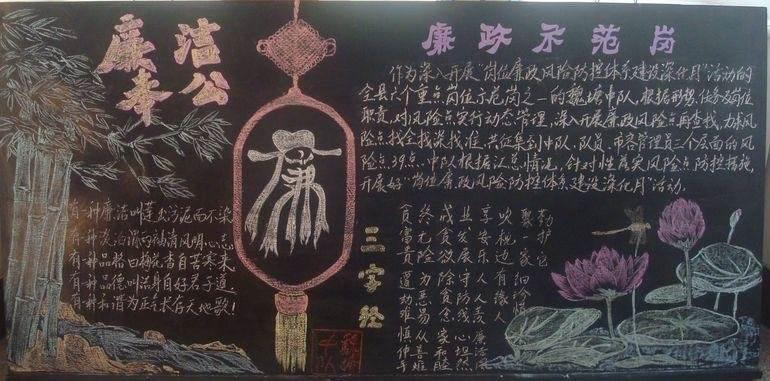 廉洁
奉公
廉政示范岗
作为深入开展“岗位廉政风险防控体系建设深化月”活动的
全县六个重点岗位示范岗之一的魏塘中队，根据形势、任务及岗位
职责，对风险点实行动态管理，深入开展廉政风险点再查找，力求风
险点找全找深找准，共征集到中队、队员、市容管理员三个层面的风
险点39点，中队根据汇总情况，针对性落实风险点防控措施，
开展好“岗位廉政风险防控体系建设深化月”活动。
廉
有一种廉洁叫莲出污泥而不染
有一种淡泊谓两袖清风明心志
有一种品格曰梅花香自苦寒来
有一种品德叫洁身自好君子道
有一种和谓为正气长存天地歌！
三字经
勤护官
聚一家
吹枕边
享安乐 人人爱
业发展 守防线 心坦然
戒贪欲 除贪念 家和
终无险 为恶易 从善难
贪富贵 遒劫难 慎伸手
魏塘
中队